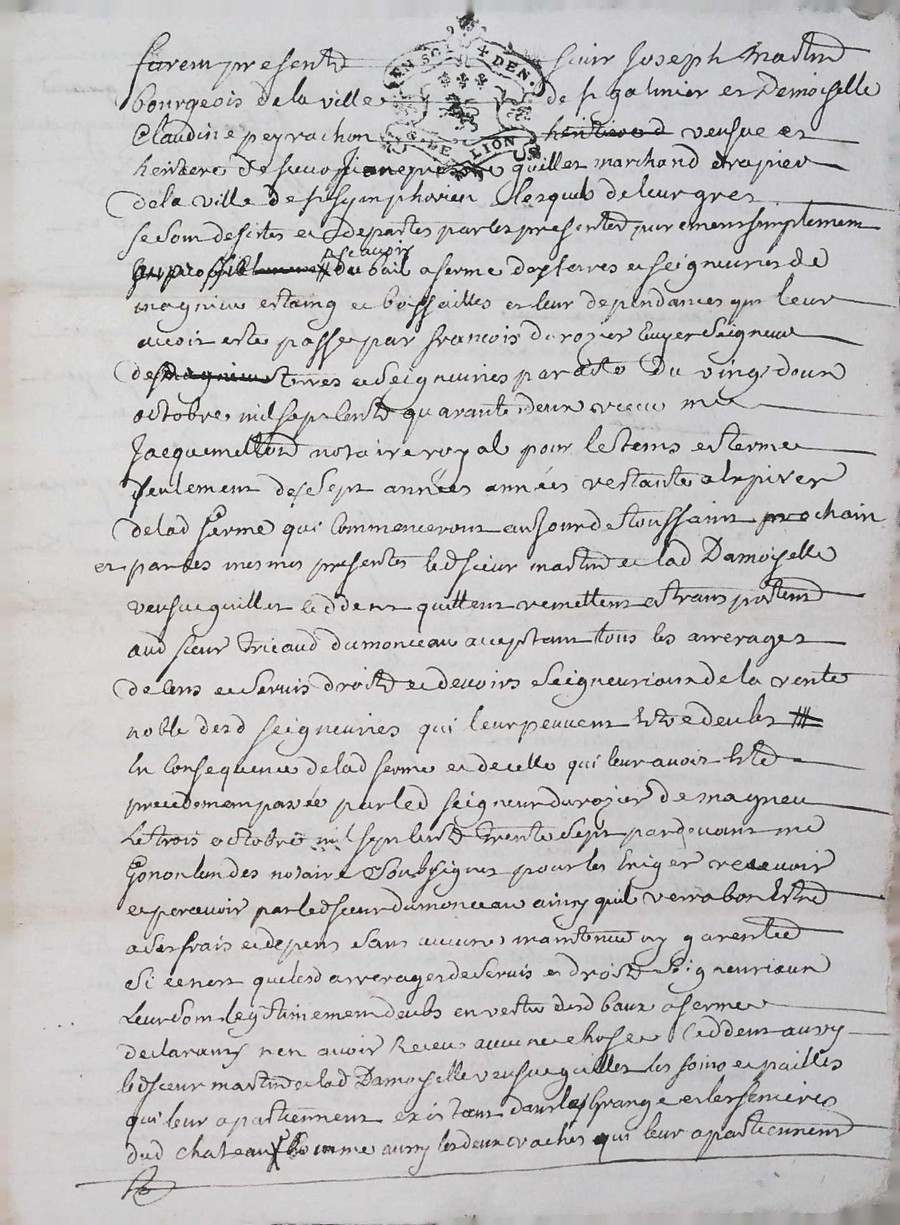 furent presents sieur Joseph Martin
bourgeois de la ville de St galmier et Demoiselle
Claudine peyrachon veufve et
GEN DE LION
heritiere de feu quiller marchand drapier
de la ville de St Symphorien lesquels de leur gres
se sont desistes et departes par les presentes purement simplement
scavoir
du bail a ferme des terres et seigneuries de
magnieu et leur dependances qui leur
avoit este passe par francois durozier Ecuyer Seigneur
des terres et Seigneuries par acte Du vingt deux
octobre mil sept cents quarante deux receu me
Jacquemetton notaire royal pour le tems et terme
seulement des Sept années années restante a expirer
de lad ferme qui Commenceront au Jour de toussaint prochain
et par les mesmes presentes led sieur martin et lad Damoiselle
veufve quiller ceddent quittent remettent et transportent
aud sieur dumonceau acceptant tous les arrerages
de Cens et Servis droits et devoirs Seigneuriaux de la rente
noble desd seigneuries qui leur peuvent estre deubs
En Consequence de lad ferme et de celle qui leur avoit esté
precedement passée par led seigneur durozier de magneu
Le trois octobre mil sept cents trente Sept pardevant me
notaire Soubsigné pour les Exiger recevoir
et percevoir par led sieur dumonceau ainsy quil verra bon estre
a Ses frais et depens Sans aucune maintenue ny garentie
Si ce nest que lesd arrerages de Servis et droits Seigneuriaux
Leur sont legitimement deubs en vertu desd baux a ferme
declarants nen avoir Receu aucune chose Ceddent aussy
led sieur martin et lad Damoiselle veufve quiller les foins et pailles
qui leur apartiennent existant dans les Grange et les fenieres
dud chateau Comme aussy les deux vaches qui leur apartiennent